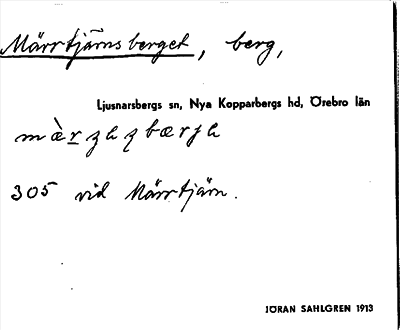 Märrtjärnsberget, berg,
Ljusnarsbergs sn, Nya Kopparbergs hd, Örebro län
305 vid Märrtjärn.
JÖRAN SAHLGREN 1913